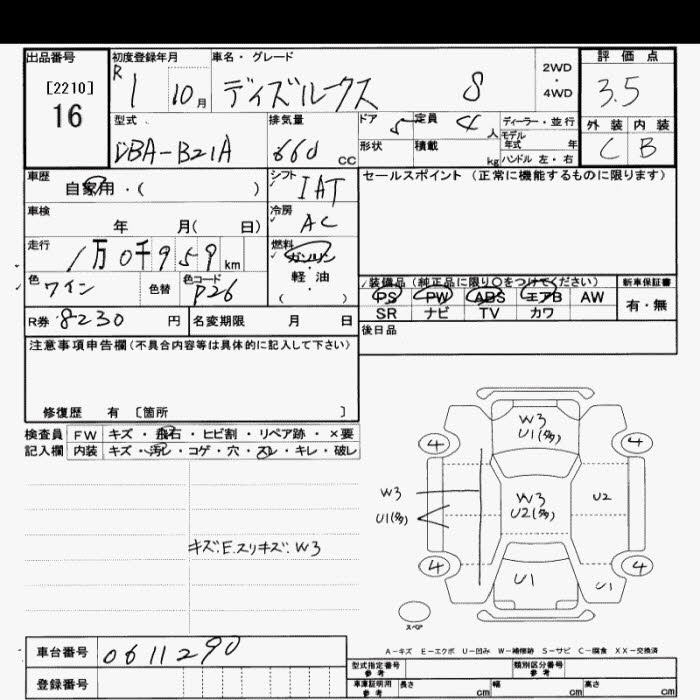 出品番号 初度登録年月 車名・グレード 2WD・4WD 評価点
[2210]
16
R1 10月 ディズルークス S 3.5
型式 排気量 ドア 定員 ディーラー・並行 外装 内装
DBA-B21A 660 cc 5 4人 モデル年式 年 C B
形状 積載 kg ハンドル 左・右
車歴 自家用・( ) シフト IAT
セールスポイント (正常に機能するものに限ります)
車検 年 月( 日) 冷房 AC
走行 1万0千959km 燃料 ガソリン・軽油 ( )
色 ワイン 色替 色コード P26
装備品 (純正品に限り○をつけてください) 新車保証書
PS PW ABS エアB AW 有・無
SR ナビ TV カワ
R券 8230円 名変期限 月 日
後日品
注意事項申告欄(不具合内容等は具体的に記入して下さい)
修復歴 有 〔箇所 〕
検査員 FW キズ・飛石・ヒビ割・リペア跡・×要
記入欄 内装 キズ・汚レ・コゲ・穴・スレ・キレ・破レ
キズ:E.スリキズ:W3
W3
U1(多)
4 4
W3
U1(多)
W3
U2(多)
U2
4 4
U1
U1
スペア
A-キズ E-エクボ U-凹み W-補修跡 S-サビ C-腐食 XX-交換済
車台番号 0611290
登録番号
型式指定番号 参考 類別区分番号 参考
車庫証明用 参考 長さ cm 幅 cm 高さ cm